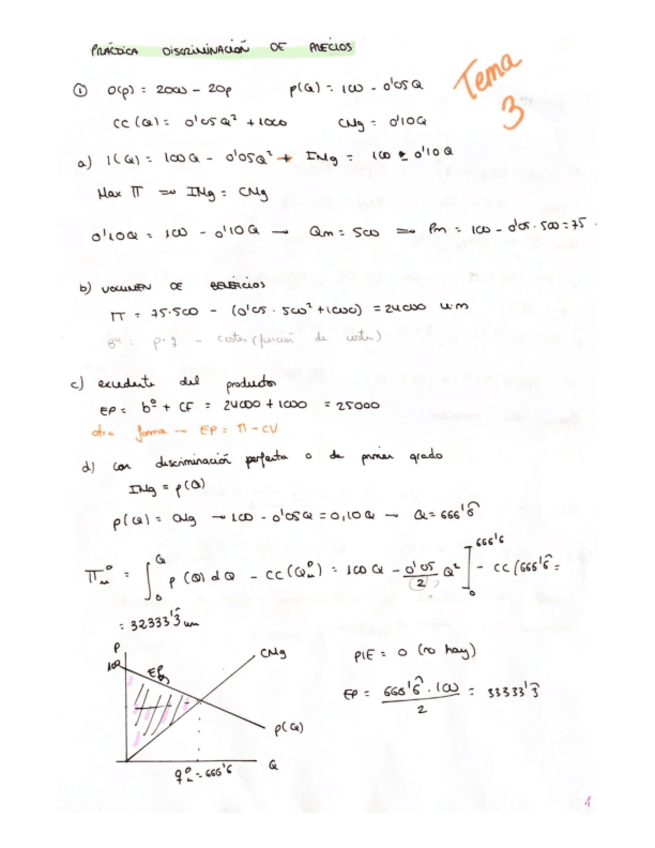 PRÁCTICA DISCRIMINACIÓN DE PRECIOS
Tema 3
① D(p) = 2000 - 20p    p(Q) = 100 - 0'05Q
CC(Q) = 0'05Q² + 1000    CMg = 0'10Q
a) I(Q) = 100Q - 0'05Q² → IMg = 100 - 0'10Q
Max Π ⇒ IMg = CMg
0'10Q = 100 - 0'10Q → Qm = 500 ⇒ Pm = 100 - 0'05·500 = 75.
b) VOLUMEN DE BENEFICIOS
Π = 75·500 - (0'05·500² + 1000) = 24000 u.m
p·q - costes (función de costes)
c) excedente del productor
EP = bº + CF = 24000 + 1000 = 25000
otra forma → EP = Π - CV
d) con discriminación perfecta o de primer grado
IMg = p(Q)
p(Q) = CMg → 100 - 0'05Q = 0,10Q → Q = 666'6̂
Πᴰₘ = ∫₀^Q p(Q)dQ - CC(Qᴰₘ) = 100Q - 0'05/(2) Q² ]₀^666'6 - CC(666'6̂ =
= 32333'3̂ um
P
100
EP
CMg
p(Q)
Q
qᴰₘ = 666'6
PIE = 0 (no hay)
EP = 666'6̂ · 100 / 2 = 33333'3̂
1